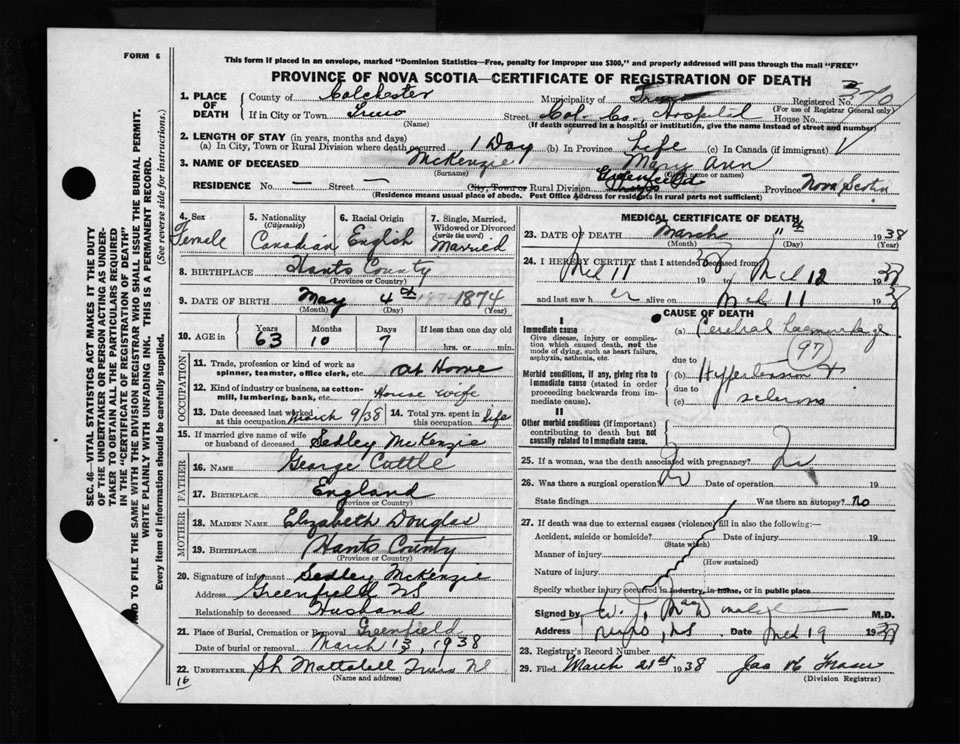 FORM 6
This form if placed in an envelope, marked "Dominion Statistics—Free, penalty for improper use $300," and properly addressed will pass through the mail "FREE"
PROVINCE OF NOVA SCOTIA—CERTIFICATE OF REGISTRATION OF DEATH
1. PLACE OF DEATH
County of Colchester Municipality of Truro Registered No.
(For use of Registrar General only)
If in City or Town Truro Street Col. Co. Hospital House No.
(Name) (If death occurred in a hospital or institution, give the name instead of street and number)
2. LENGTH OF STAY (in years, months and days)
(a) In City, Town or Rural Division where death occurred 1 Day (b) In Province Life (c) In Canada (if immigrant)
3. NAME OF DECEASED McKenzie Mary Ann
(Surname) (Given name or names)
RESIDENCE No. — Street — City, Town or Rural Division Greenfield Province Nova Scotia
(Residence means usual place of abode. Post Office Address for residents in rural parts not sufficient)
4. Sex Female
5. Nationality (Citizenship) Canadian
6. Racial Origin English
7. Single, Married, Widowed or Divorced (write the word) Married
8. BIRTHPLACE Hants County
(Province or Country)
9. DATE OF BIRTH May 4th 1874
(Month) (Day) (Year)
10. AGE in Years 63 Months 10 Days 7 If less than one day old
hrs. or min.
OCCUPATION
11. Trade, profession or kind of work as spinner, teamster, office clerk, etc. at Home
12. Kind of industry or business, as cotton-mill, lumbering, bank, etc. House wife
13. Date deceased last worked at this occupation March 9/38
14. Total yrs. spent in this occupation life
15. If married give name of wife or husband of deceased Sedley McKenzie
FATHER
16. NAME George Cottle
17. BIRTHPLACE England
(Province or Country)
MOTHER
18. MAIDEN NAME Elizabeth Douglas
19. BIRTHPLACE Hants County
(Province or Country)
20. Signature of informant Sedley McKenzie
Address Greenfield NS
Relationship to deceased Husband
21. Place of Burial, Cremation or Removal Greenfield
Date of burial or removal March 13, 1938
22. UNDERTAKER Truro NS
(Name and address)
16
MEDICAL CERTIFICATE OF DEATH
23. DATE OF DEATH March 11th 1938
(Month) (Day) (Year)
24. I HEREBY CERTIFY that I attended deceased from
Mch 11 19 38 to Mch 12 1938
and last saw her alive on Mch 11 1938
CAUSE OF DEATH
I
Immediate cause (a) Cerebral haemorrhage
Give disease, injury or complication which caused death, not the mode of dying, such as heart failure, asphyxia, asthenia, etc.
97
due to
Morbid conditions, if any, giving rise to immediate cause (stated in order proceeding backwards from immediate cause).
(b) Hypertension &
due to
(c) sclerosis
II
Other morbid conditions (if important) contributing to death but not causally related to immediate cause.
25. If a woman, was the death associated with pregnancy? No
26. Was there a surgical operation? No Date of operation 19
State findings Was there an autopsy? no
27. If death was due to external causes (violence) fill in also the following:—
Accident, suicide or homicide? Date of injury 19
(State which)
Manner of injury
(How sustained)
Nature of injury
Specify whether injury occurred in industry, in home, or in public place
Signed by M.D.
Address Truro, N.S. Date Mch 19 1938
28. Registrar's Record Number
29. Filed March 21st 1938 Jas H Fraser
(Division Registrar)
SEC. 46—VITAL STATISTICS ACT MAKES IT THE DUTY
OF THE UNDERTAKER OR PERSON ACTING AS UNDERTAKER
TO OBTAIN ALL THE PARTICULARS REQUIRED
IN THE "CERTIFICATE OF REGISTRATION OF DEATH"
AND TO FILE THE SAME WITH THE DIVISION REGISTRAR WHO SHALL ISSUE THE BURIAL PERMIT.
WRITE PLAINLY WITH UNFADING INK. THIS IS A PERMANENT RECORD.
Every item of information should be carefully supplied. (See reverse side for instructions.)